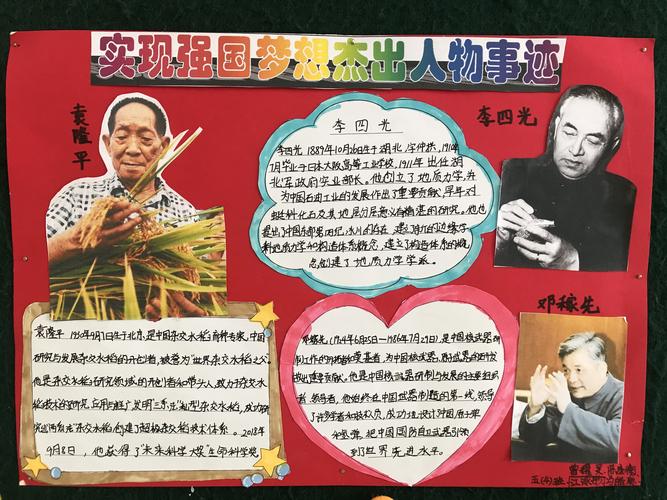 实现强国梦想杰出人物事迹
袁隆平
李四光
李四光 1889年10月26日生于湖北,字仲拱,1910年
7月毕业于日本大阪高等工业学校,1911年出任湖
北军政府实业部长。他创立了地质力学,并
为中国石油工业的发展作出了重要贡献,早年对
蜓科化石及其地层分层意义有精湛的研究。他也
提出了中国东部第四纪冰川的存在,建立了新的边缘学
科地质力学和构造体系概念,建立了构造体系的概
念创建了地质力学学派。
李四光
袁隆平 1930年9月7日生于北京,是中国杂交水稻育种专家,中国
研究与发展杂交水稻的开创者,被誉为"世界杂交水稻之父"。
他是杂交水稻研究领域的开创者和带头人,致力于杂交水
稻技术的研究、应用与推广,发明"三系"法籼型杂交水稻,成功研
究出两系法杂交水稻,创建了超级杂交水稻技术体系。2018年
9月8日,他获得了"未来科学大奖"生命科学奖
邓稼先 (1924年6月25日—1986年7月29日),是中国核武器研
制工作的奠基者,为中国核武器、原子武器的研发
做出重要贡献。他是中国核武器研制与发展的主要组织
者、领导者,他始终在中国武器制造的第一线,领导
了许多学者和技术员,成功地设计了中国原子弹
和氢弹,把中国国防自卫武器引领
到了世界先进水平。
邓稼先
五(4)班